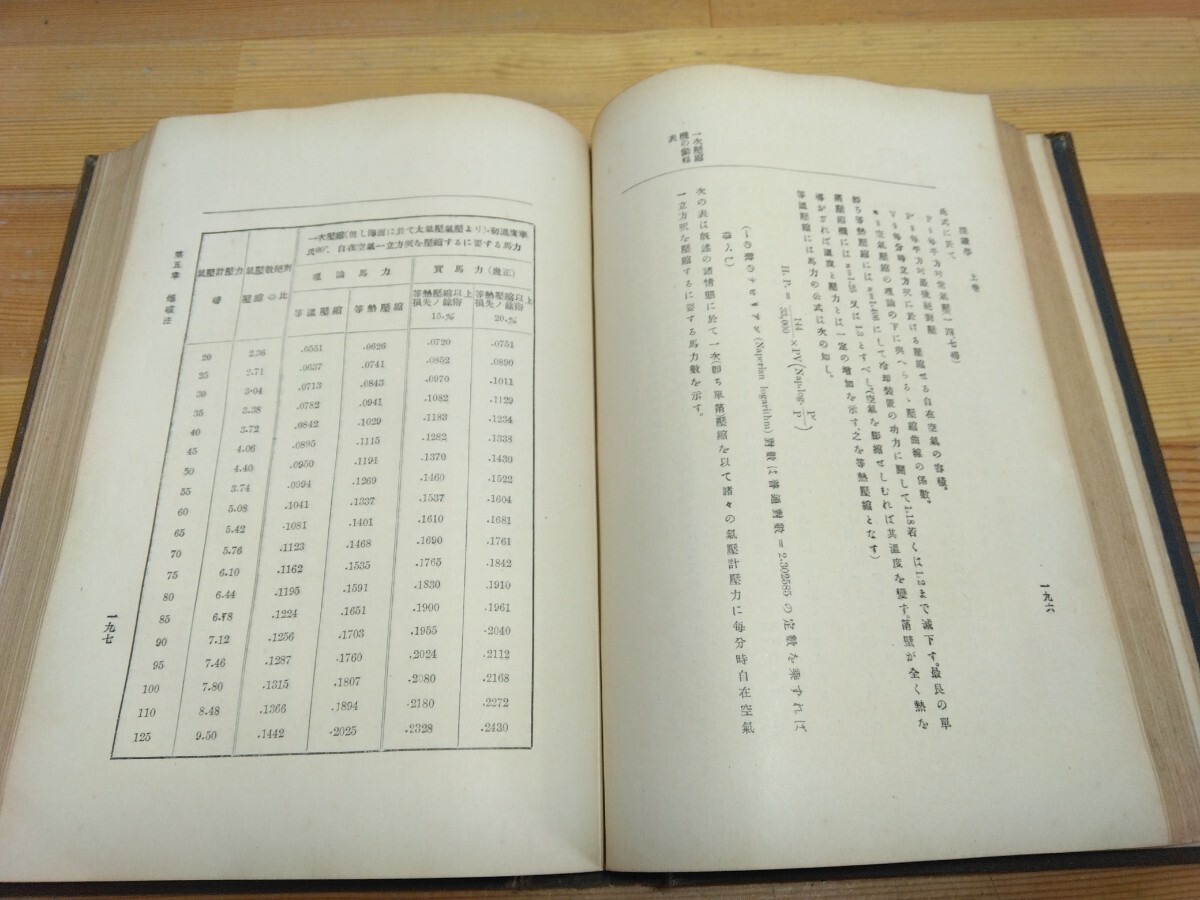 採鑛學 上卷
此式に於て、
P=每平方吋常氣壓(一四・七磅)
P'=每平方吋最後絕對壓
V=每分時立方呎に於ける壓縮せる自在空氣の容積。
n=空氣壓縮の理論の下に與へらるゝ壓縮曲線の係數。
卽ち等熱壓縮には n=1.406 にして冷却裝置の功力に關して 1.18 若くは 1.2 まで減下す。最良の單
導かれば溫度と壓力とは一定の增加を示す、之を等熱壓縮となす)
等溫壓縮には馬力の公式は次の如し。
H. P. = 144/33,000 × PV(Nap.log. P'/P)
(Naperian logarithm) 對數は普通對數=2.302585 の定數を乘ずれば
導入し)
次の表は敍述の諸情態に於て一次(卽ち單箇壓縮を以て諸々の氣壓計壓力に每分時自在空氣
一立方呎を壓縮するに要する馬力數を示す。
一次壓縮
機の馬力
表
一九六
一次壓縮(但し海面に於て大氣壓氣壓より)、初溫度華
氏60°、自在空氣一立方呎を壓縮するに要する馬力
氣壓計壓力 磅
氣壓數絕對壓縮の比
理論馬力
實馬力(幾正)
等溫壓縮
等熱壓縮
等熱壓縮以上損失ノ餘裕 15.%
等熱壓縮以上損失ノ餘裕 20.%
20 2.36 .0551 .0626 .0720 .0751
25 2.71 .0637 .0741 .0852 .0890
30 3.04 .0713 .0843 .0970 .1011
35 3.38 .0782 .0941 .1082 .1129
40 3.72 .0842 .1029 .1183 .1234
45 4.06 .0895 .1115 .1282 .1338
50 4.40 .0950 .1191 .1370 .1430
55 3.74 .0994 .1269 .1460 .1522
60 5.08 .1041 .1337 .1537 .1604
65 5.42 .1081 .1401 .1610 .1681
70 5.76 .1123 .1468 .1690 .1761
75 6.10 .1162 .1535 .1765 .1842
80 6.44 .1195 .1591 .1830 .1910
85 6.78 .1224 .1651 .1900 .1961
90 7.12 .1256 .1703 .1955 .2040
95 7.46 .1287 .1760 .2024 .2112
100 7.80 .1315 .1807 .2080 .2168
110 8.48 .1366 .1894 .2180 .2272
125 9.50 .1442 .2025 .2328 .2430
第五章 爆破法
一九七